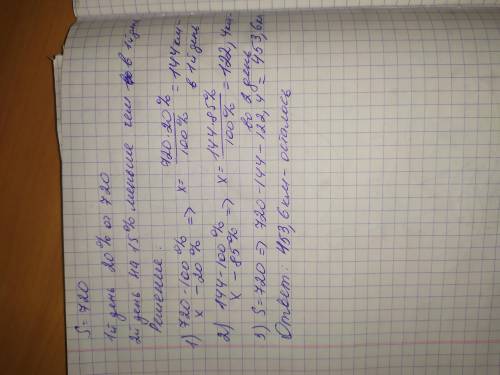 S = 720
1й день 20% от 720
2й день на 15% меньше чем в 1й день
Решение:
1) 720 - 100% x - 20% => x = 720·20% / 100% = 144 км - в 1й день
2) 144 - 100% x - 85% => x = 144·85% / 100% = 122,4 км - во 2 день
3) S = 720 => 720 - 144 - 122,4 = 453,6 км
Ответ: 453,6 км - осталось